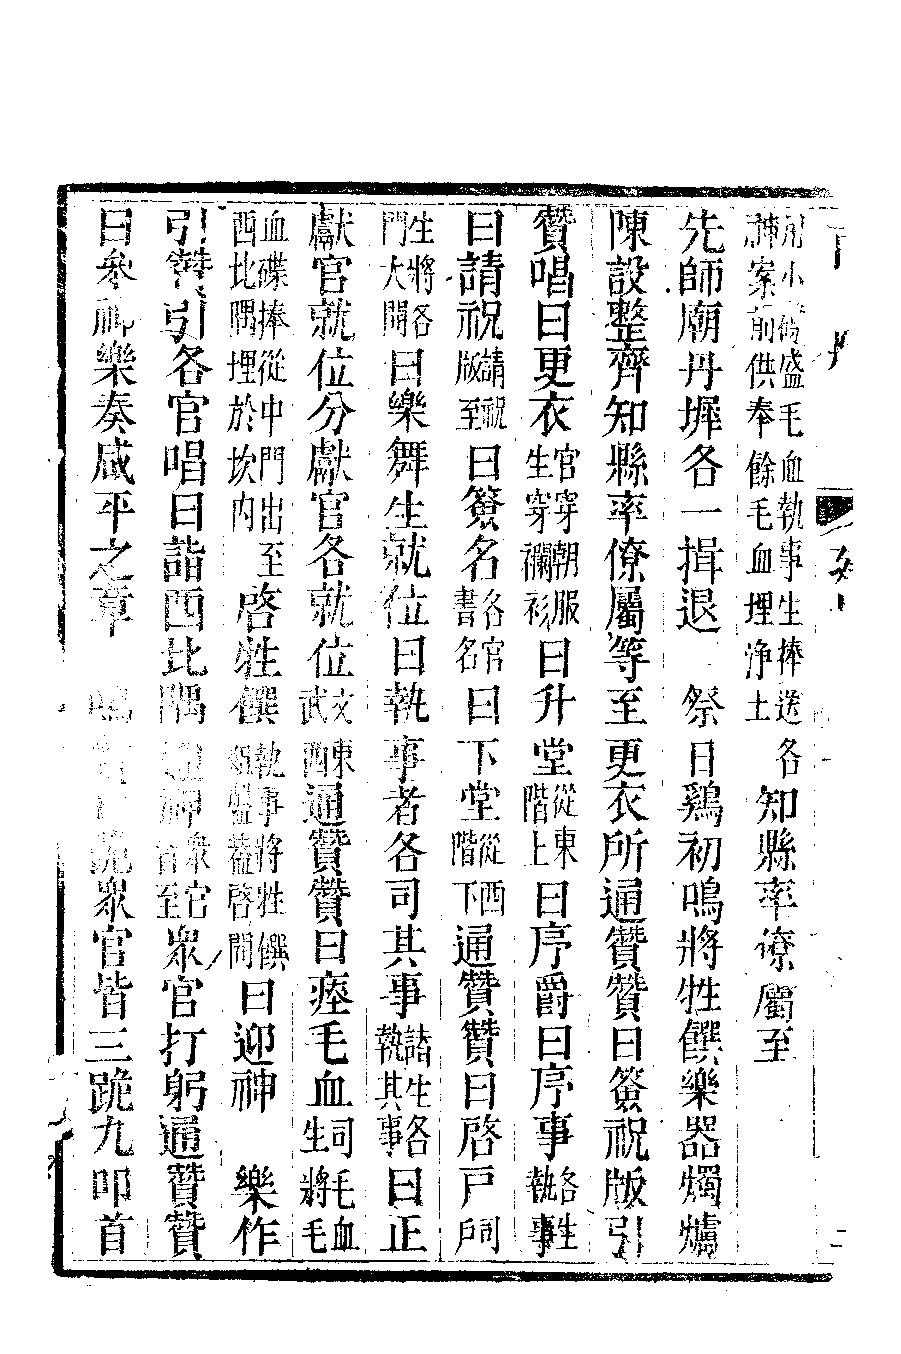 用小碟盛毛血執事生捧送神案前供奉餘毛血埋浄土各知縣率僚屬至
先師廟丹墀各一揖退　祭日鷄初鳴將牲饌樂器燭爐
陳設整齊知縣率僚屬等至更衣所通贊贊曰簽祝版引
贊唱曰更衣官穿朝服生穿襴衫曰升堂從東階上曰序爵曰序事各生執事
曰請祝請祝版至曰簽名各官書名曰下堂從西階下通贊贊曰啓戶司戶
生將各門大開曰樂舞生就位曰執事者各司其事諸生各執其事曰正
獻官就位分獻官各就位文東武西通贊贊曰瘞毛血司毛血生將毛
血碟捧從中門出至西北隅埋於坎内啓牲饌執事將牲饌蓋啓開曰迎神　樂作
引贊引各官唱曰詣西北隅神衆官至衆官打躬通贊贊
曰參神樂奏咸平之章跪衆官皆三跪九叩首